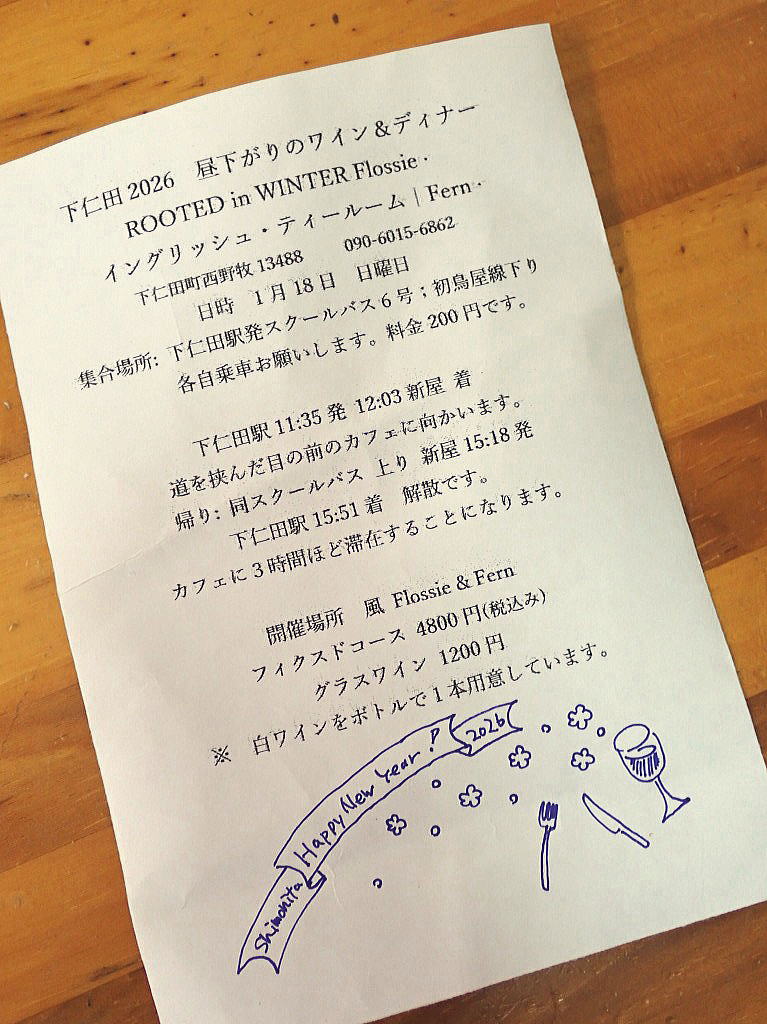 下仁田 2026　昼下がりのワイン＆ディナー
ROOTED in WINTER Flossie ·
イングリッシュ・ティールーム | Fern ·
下仁田町西野牧 13488　　090-6015-6862
日時　1 月 18 日　日曜日
集合場所: 下仁田駅発スクールバス 6 号；初鳥屋線下り
各自乗車お願いします。料金 200 円です。
下仁田駅 11:35 発 12:03 新屋 着
道を挟んだ目の前のカフェに向かいます。
帰り: 同スクールバス 上り 新屋 15:18 発
下仁田駅 15:51 着　解散です。
カフェに 3 時間ほど滞在することになります。
開催場所　風 Flossie & Fern
フィクスドコース 4800 円(税込み)
グラスワイン 1200 円
※　白ワインをボトルで 1 本用意しています。
Shimonita Happy New Year! 2026